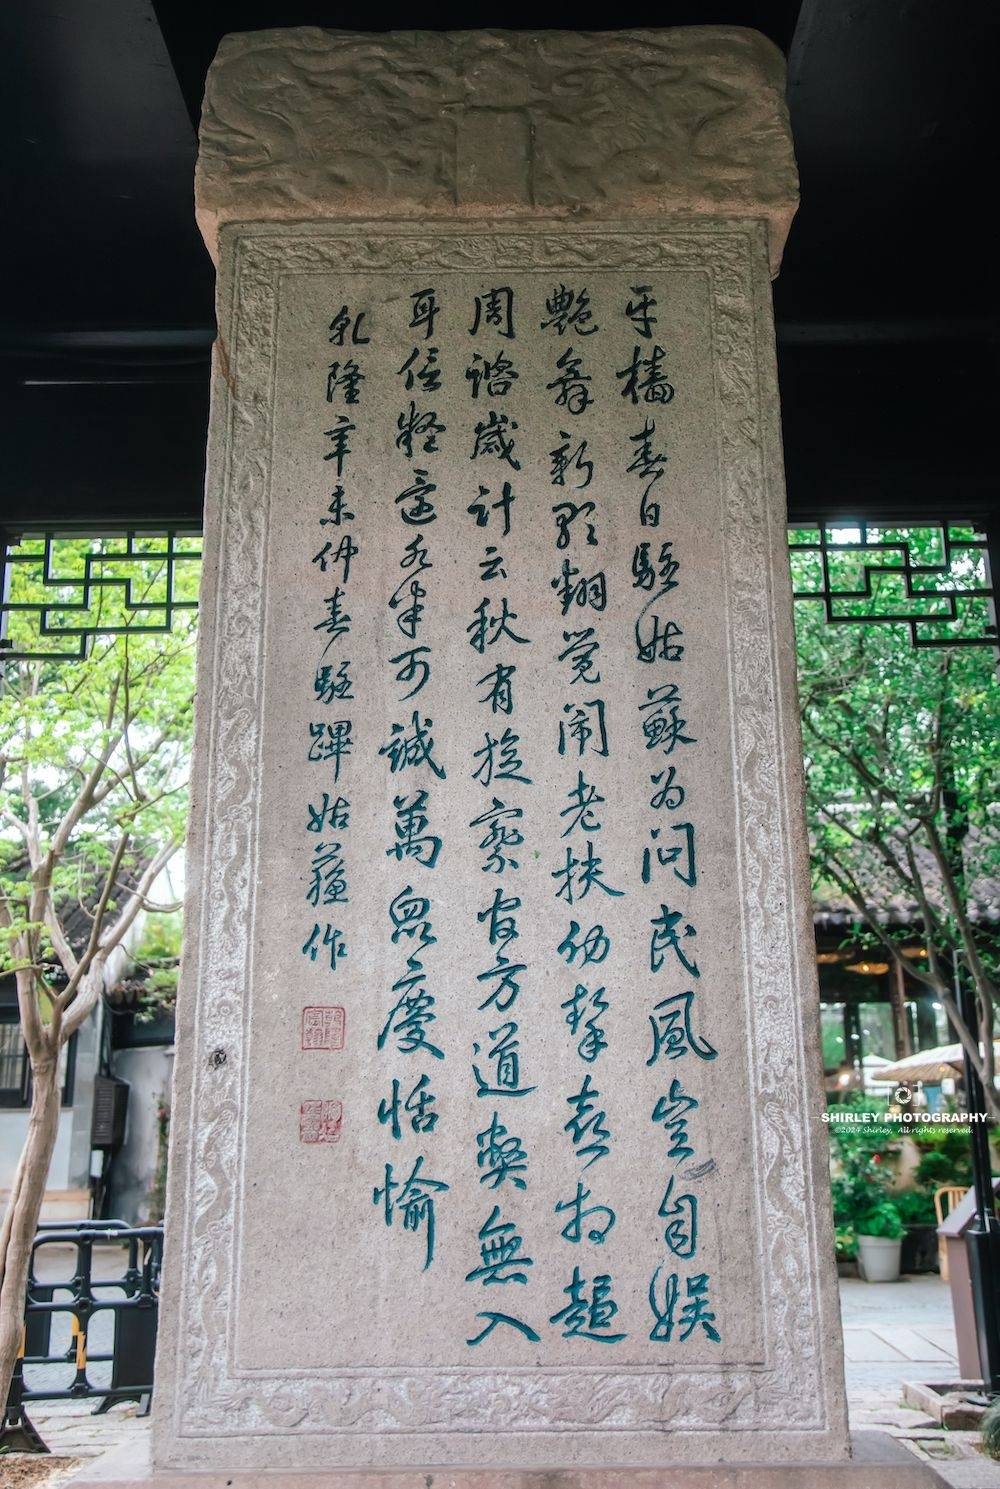 牙檣春日駐姑蘇為問民風豈自娛
艷舞新歌翻覺鬧老扶幼挈喜相趨
周諮歲計云秋有旋察官方道弊無入
耳信疑還各半可誠萬眾慶恬愉
乾隆辛未仲春駐蹕姑蘇作
SHIRLEY PHOTOGRAPHY
©2024 Shirley. All rights reserved.